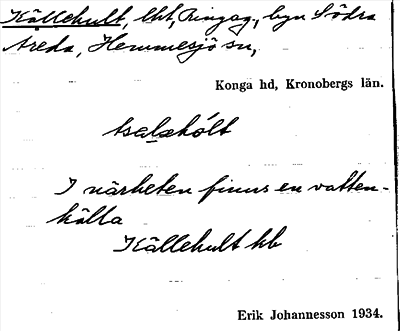 Källehult, lht, Ringag., byn Södra
Åreda, Hemmesjö sn,
Konga hd, Kronobergs län.
I närheten finns en vatten-
källa
Källehult hb
Erik Johannesson 1934.